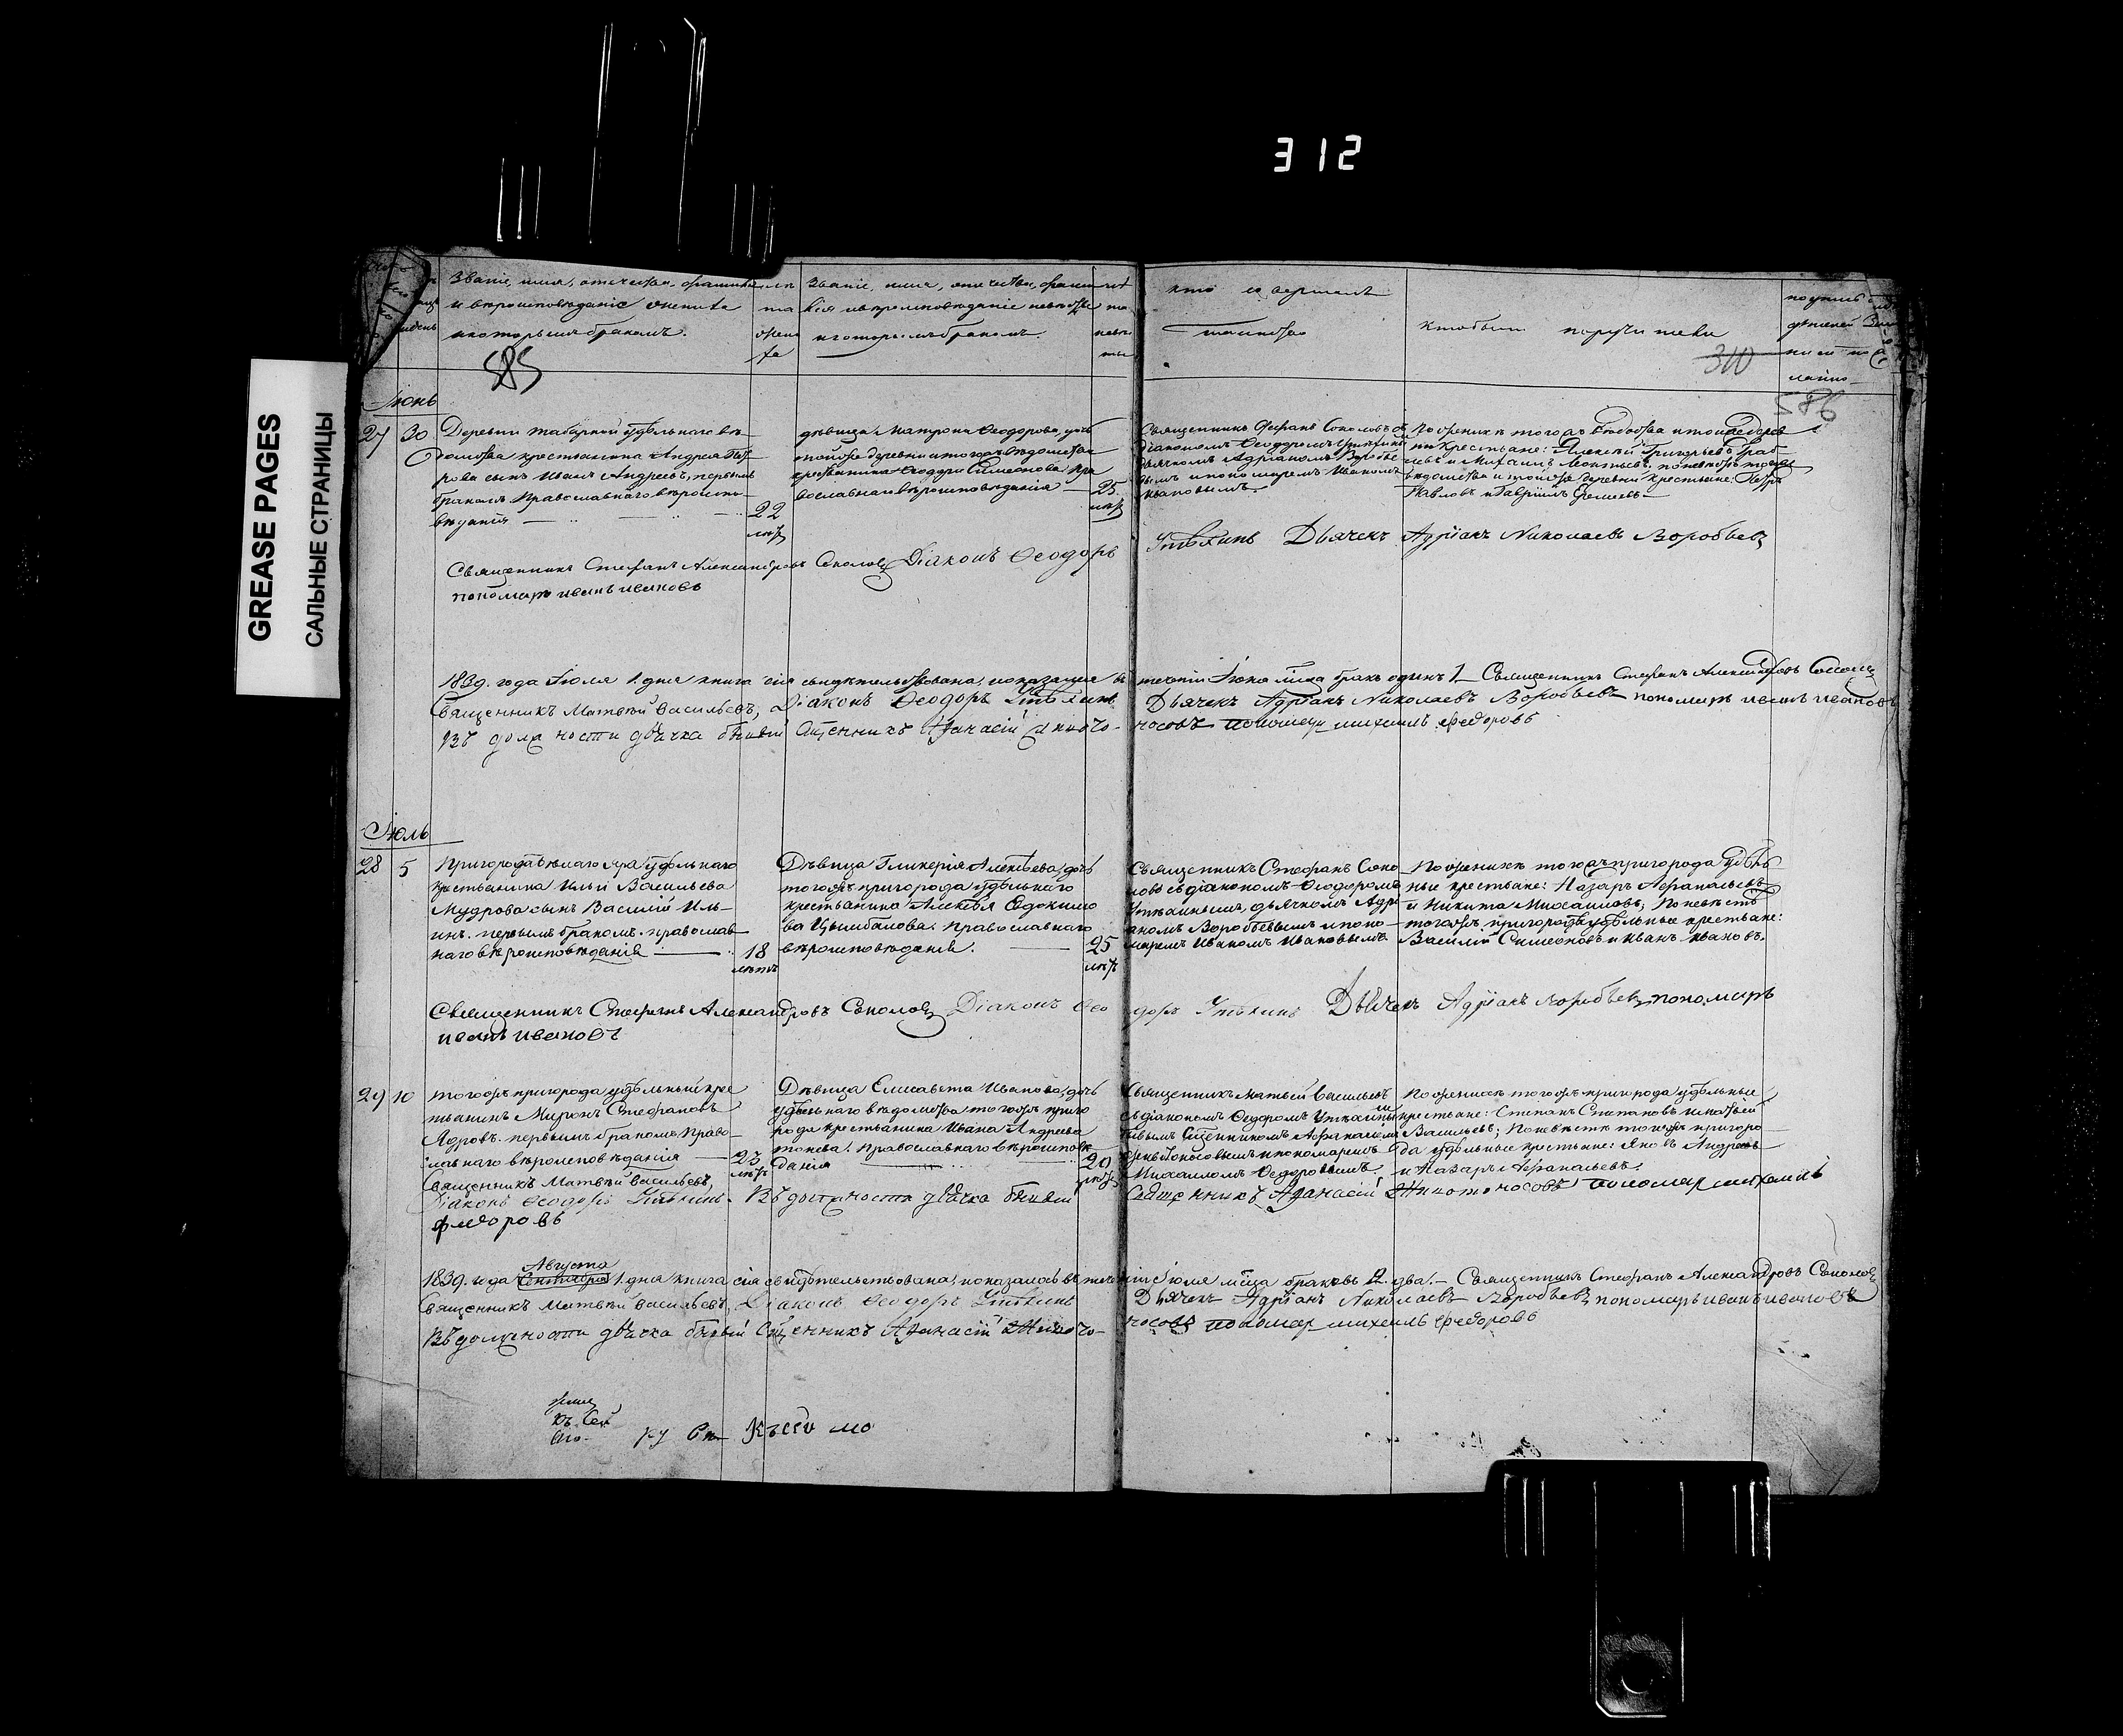 312
GREASE PAGES
САЛЬНЫЕ СТРАНИЦЫ
Званіе, имя, отечество, фамилія
и вѣроисповѣданіе жениха
и которымъ бракомъ.
Званіе, имя, отечество, фами
лія и вѣроисповѣданіе невѣсты
и которымъ бракомъ.
кто совершалъ
таинство
кто были поручители
585
310
586
Іюнь
27 30
Деревни удѣльнаго вѣ-
домства крестьянина Андрея Пет
рова сынъ Иванъ Андреевъ, первымъ
бракомъ Православнаго вѣроиспо-
вѣданія
22
дѣвица Матрона Ѳеодорова, дочь
тойже деревни и тогожъ вѣдомства
крестьянина Ѳеодора Симеонова пра
вославнаго вѣроисповѣданія
25
Священникъ Стефанъ Соколовъ съ
діакономъ Ѳеодоромъ
дьячкомъ Адріаномъ Воробье
вымъ и пономаремъ Иваномъ
Ивановымъ.
По женихѣ тогожъ вѣдомства и тойже дерев
ни крестьяне: Алексей Григорьевъ
и Михаилъ Леонтьевъ; по невѣстѣ тогоже
вѣдомства и тойже деревни крестьяне: Петръ
Павловъ и Гавріилъ
Священникъ Стефанъ Александровъ Соколовъ Діаконъ Ѳеодоръ
Утѣхинъ Дьячекъ Адріанъ Николаевъ Воробьевъ
пономарь иванъ ивановъ
1839. года Іюля 1. дня книга сія свидѣтельствована, показалось въ теченіи Іюня мѣсяца бракъ одинъ 1 Священникъ Стефанъ Александровъ Соколовъ
Священникъ Матвѣй Васильевъ, Діаконъ Ѳеодоръ Утѣхинъ Дьячекъ Адріанъ Николаевъ Воробьевъ пономарь иванъ ивановъ
Въ должности дьячка бывый Священникъ Афанасій пономарь михаилъ федоровъ
Іюль
28 5
Пригорода Бѣлаго Яра удѣльнаго
крестьянина Ильи Васильева
Мудрова сынъ Василій Иль-
инъ. первымъ бракомъ. православ
наго вѣроисповѣданія
18
лѣтъ
Дѣвица Гликерія Алексѣева, дочь
тогожъ пригорода удѣльнаго
крестьянина Алексѣя Евдокимо
ва Цымбалова. православнаго
вѣроисповѣданія.
25
лѣтъ
Священникъ Стефанъ Соко
ловъ съ діакономъ Ѳеодоромъ
Утѣхинымъ, дьячкомъ Адрі
аномъ Воробьевымъ и поно-
маремъ Иваномъ Ивановымъ
По женихѣ тогожъ пригорода удѣль
ные крестьяне: Назаръ Афанасьевъ
и Никита Михайловъ; По невѣстѣ
тогожъ пригорода удѣльные крестьяне:
Василій Симеоновъ и Иванъ Ивановъ.
Священникъ Стефанъ Александровъ Соколовъ Діаконъ Ѳеодоръ Утѣхинъ Дьячекъ Адріанъ Воробьевъ пономарь
иванъ ивановъ
29 10
тогожъ пригорода удѣльный крес
тьянинъ Миронъ Стефановъ
Ядровъ. первымъ бракомъ Право
славнаго вѣроисповѣданія
23
лѣтъ
Дѣвица Елисавета Иванова, дочь
удѣльнаго вѣдомства тогожъ приго
рода крестьянина Ивана Андреева
Православнаго вѣроисповѣ
данія
20
лѣтъ
Священникъ Матвѣй Васильевъ
съ діакономъ Ѳедоромъ Утѣхинымъ
бывымъ Священникомъ Афанасіемъ
и пономаремъ
Михаиломъ Ѳедоровымъ.
По женихѣ тогожъ пригорода удѣльные
крестьяне: Степанъ Степановъ и
Васильевъ; По невѣстѣ тогожъ пригоро-
да удѣльные крестьяне: Яковъ Андреевъ
и Назаръ Афанасьевъ.
Священникъ Матвѣй Васильевъ,
Діаконъ Ѳеодоръ Утѣхинъ. Въ должности дьячка бывый Священникъ Афанасій пономарь михаилъ
федоровъ
Августа
1839. года Сентября 1. дня книга сія свидѣтельствована, показалось въ теченіи Іюля мѣсяца браковъ 2. два. Священникъ Стефанъ Александровъ Соколовъ
Священникъ Матвѣй Васильевъ, Діаконъ Ѳеодоръ Утѣхинъ Дьячекъ Адріанъ Николаевъ Воробьевъ пономарь иванъ ивановъ
Въ должности дьячка бывый Священникъ Афанасій пономарь михаилъ федоровъ